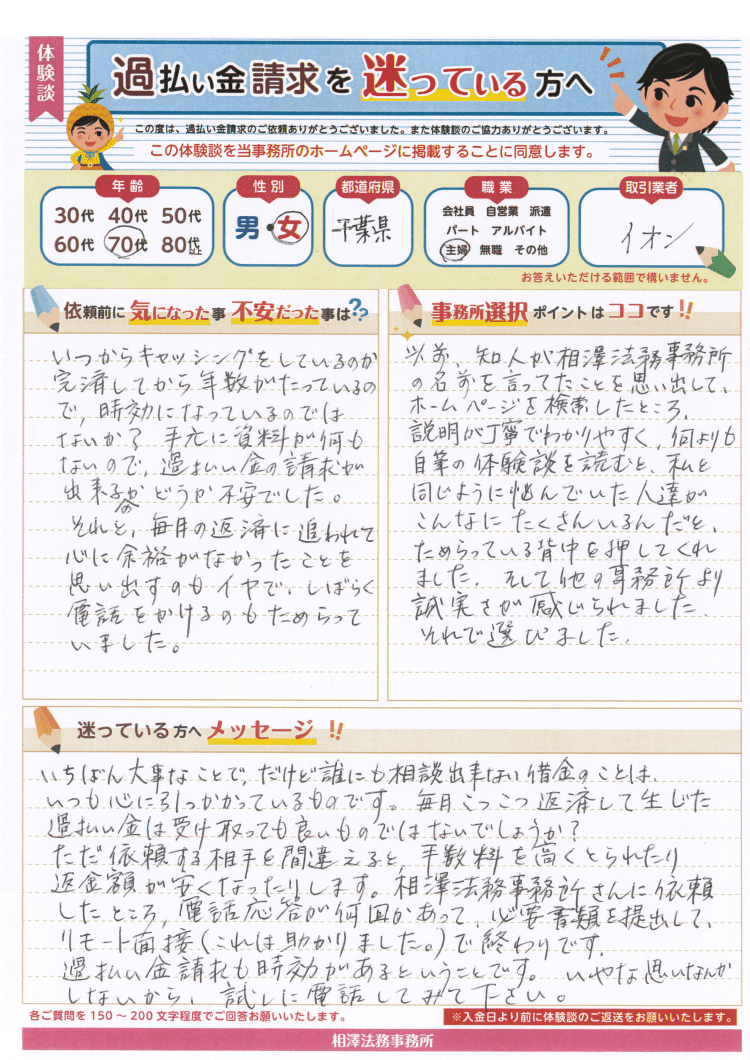 体験談
過払い金請求を迷っている方へ
この度は、過払い金請求のご依頼ありがとうございました。また体験談のご協力ありがとうございます。
この体験談を当事務所のホームページに掲載することに同意します。
年齢
30代 40代 50代
60代 70代 80代以上
性別
男・女
都道府県
千葉県
職業
会社員 自営業 派遣
パート アルバイト
主婦 無職 その他
取引業者
イオン
お答えいただける範囲で構いません。
依頼前に気になった事 不安だった事は??
いつからキャッシングをしているのか
完済してから年数がたっているの
で、時効になっているのでは
ないか？手元に資料が何も
ないので、過払い金の請求が
出来るのかどうか不安でした。
それと、毎月の返済に追われて
心に余裕がなかったことを
思い出すのもイヤで、しばらく
電話をかけるのもためらって
いました。
事務所選択ポイントはココです!!
以前、知人が相澤法務事務所
の名前を言ってたことを思い出して、
ホームページを検索したところ、
説明が丁寧でわかりやすく、何よりも
自筆の体験談を読むと、私と
同じように悩んでいた人達が
こんなにたくさんいるんだと、
ためらっている背中を押してくれ
ました。そして他の事務所より
誠実さが感じられました。
それで選びました。
迷っている方へメッセージ!!
いちばん大事なことで、だけど誰にも相談出来ない借金のことは、
いつも心に引っかかっているものです。毎月こつこつ返済して生じた
過払い金は受け取っても良いものではないでしょうか？
ただ依頼する相手を間違えると、手数料を高くとられたり
返金額が安くなったりします。相澤法務事務所さんに依頼
したところ、電話応答が何回かあって、必要書類を提出して、
リモート面接(これは助かりました。)で終わりです。
過払い金請求も時効があるということです。いやな思いなんか
しないから、試しに電話してみて下さい。
各ご質問を150～200文字程度でご回答お願いいたします。
※入金日より前に体験談のご返送をお願いいたします。
相澤法務事務所